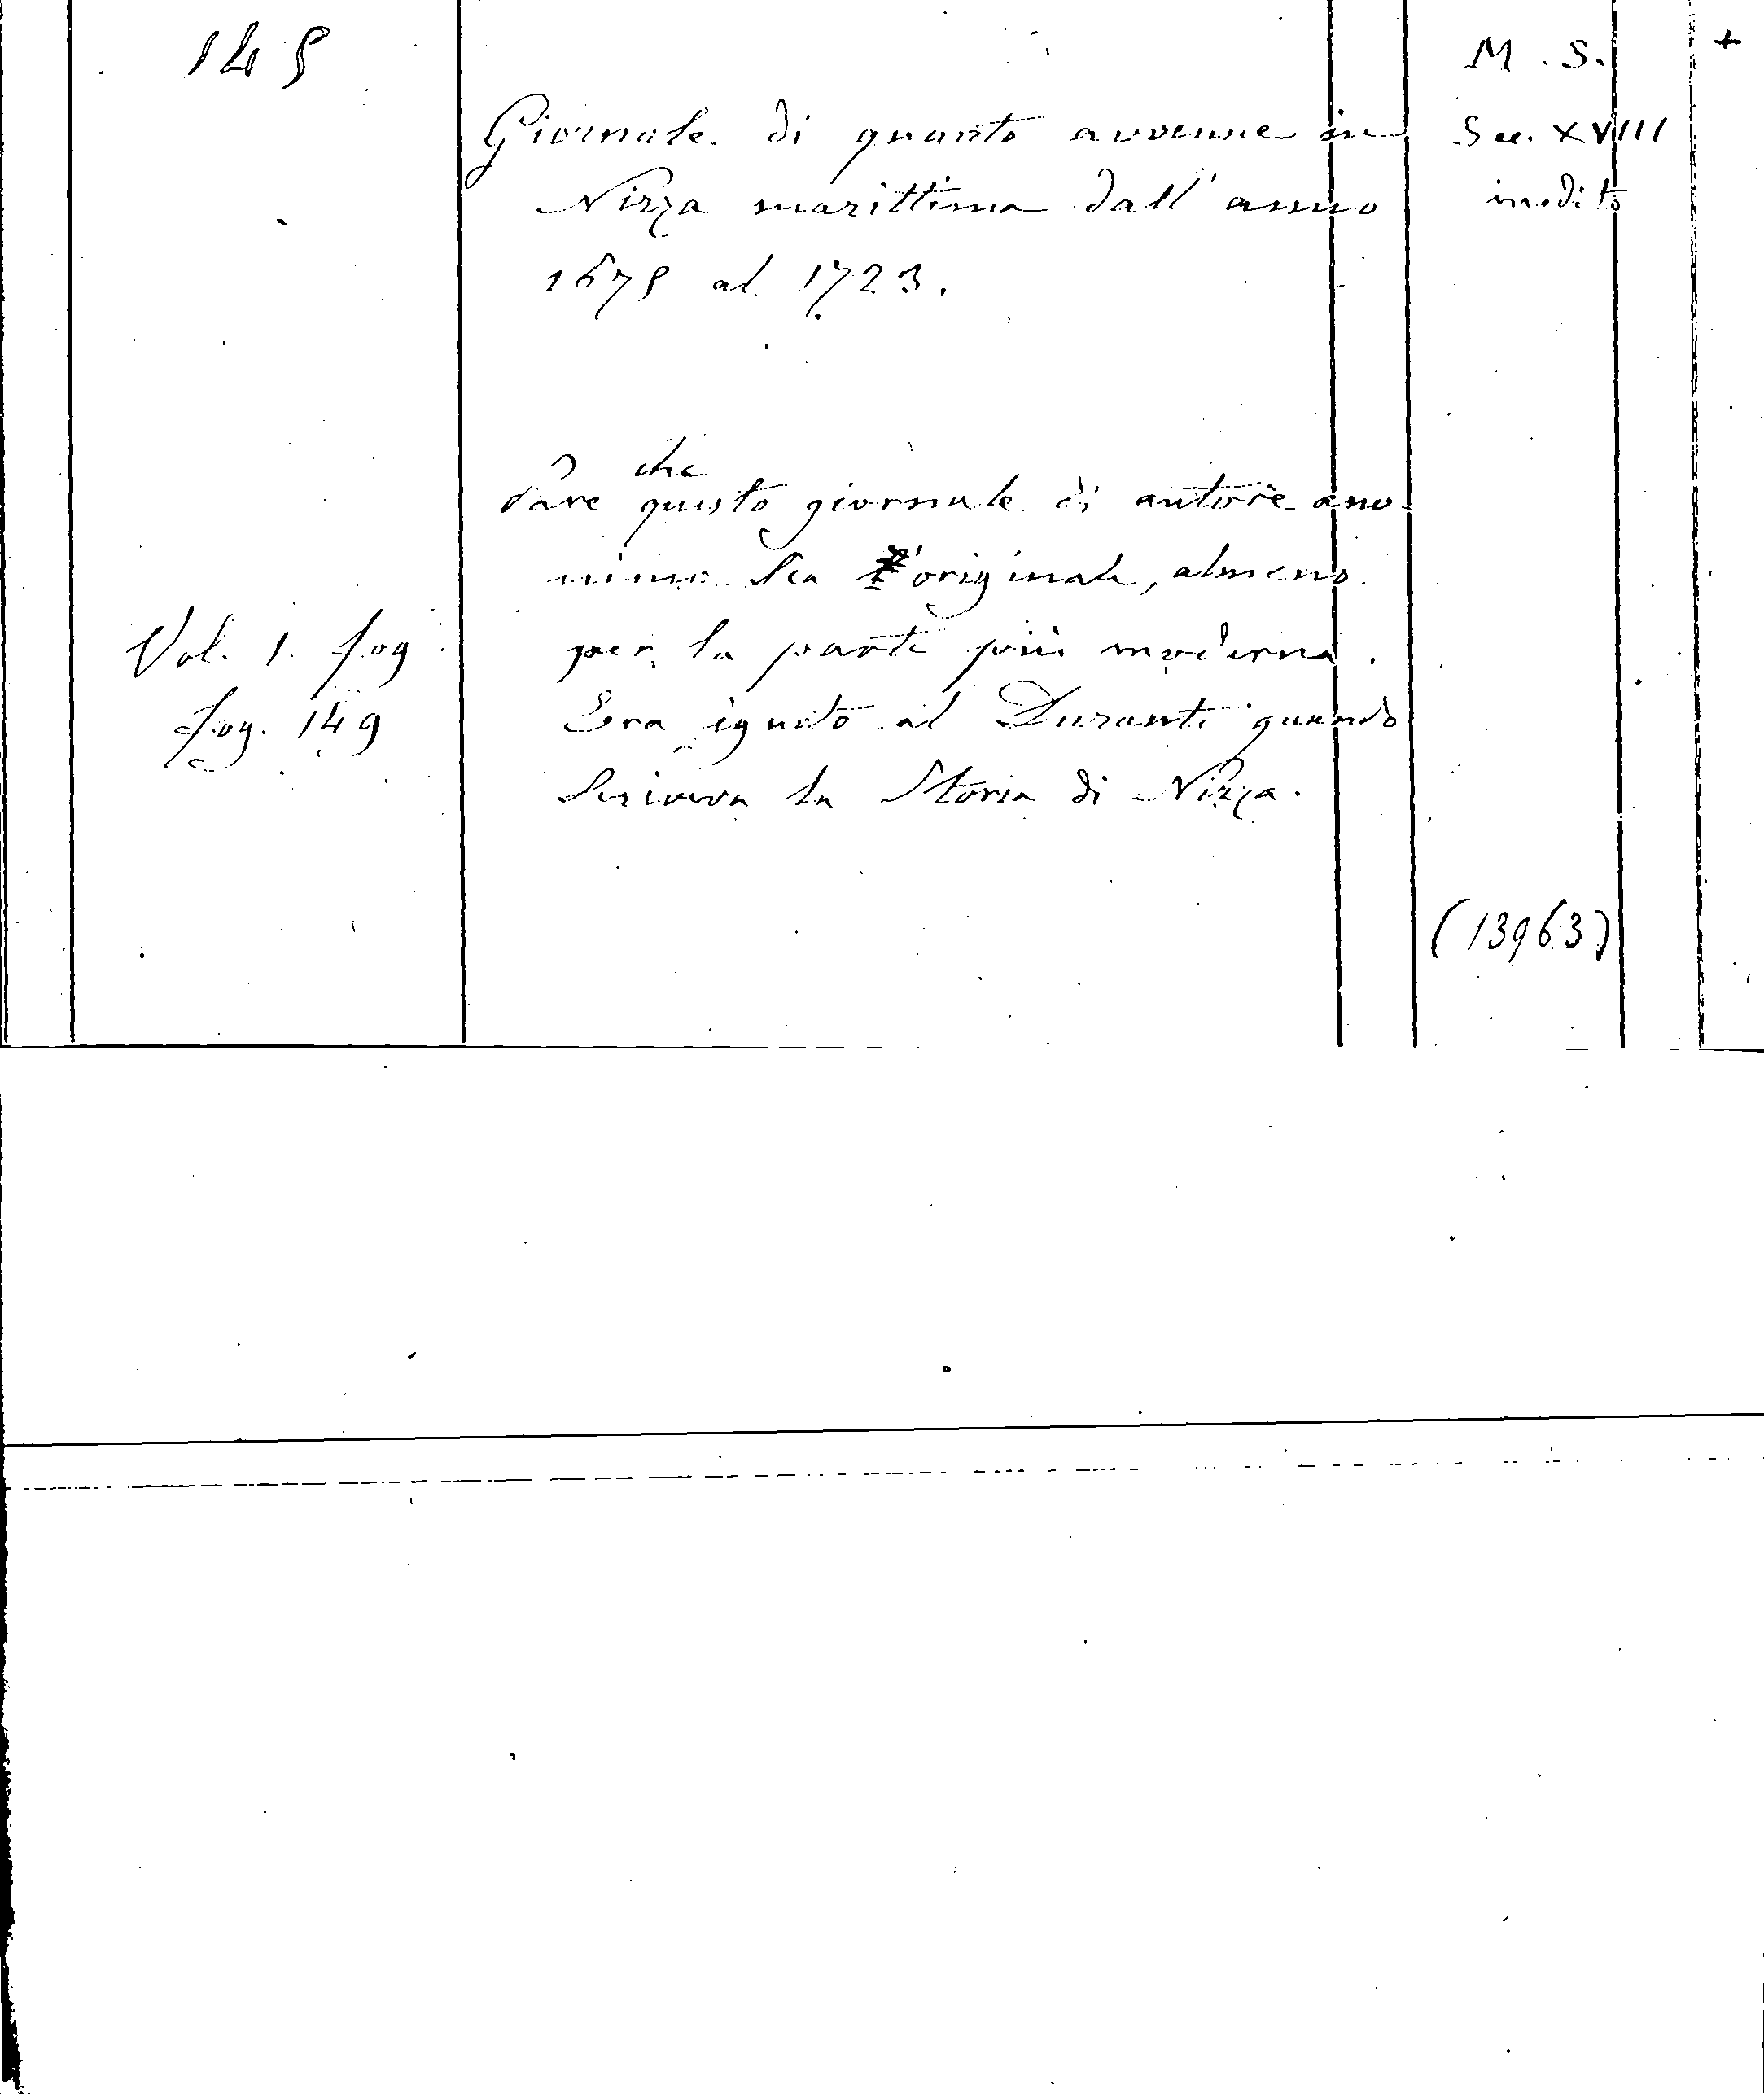 145
M. S. +
Giornale di quanto avvenne in
Sec. XVIII
Nizza marittima dall'anno
inedito
1675 al 1723.
che
Pare questo giornale di autore ano-
nimo sia l'originale, almeno
Vol. 1. fog
per la parte più moderna.
fog. 149
Era ignoto al Durante quando
scriveva la Storia di Nizza.
(13963)